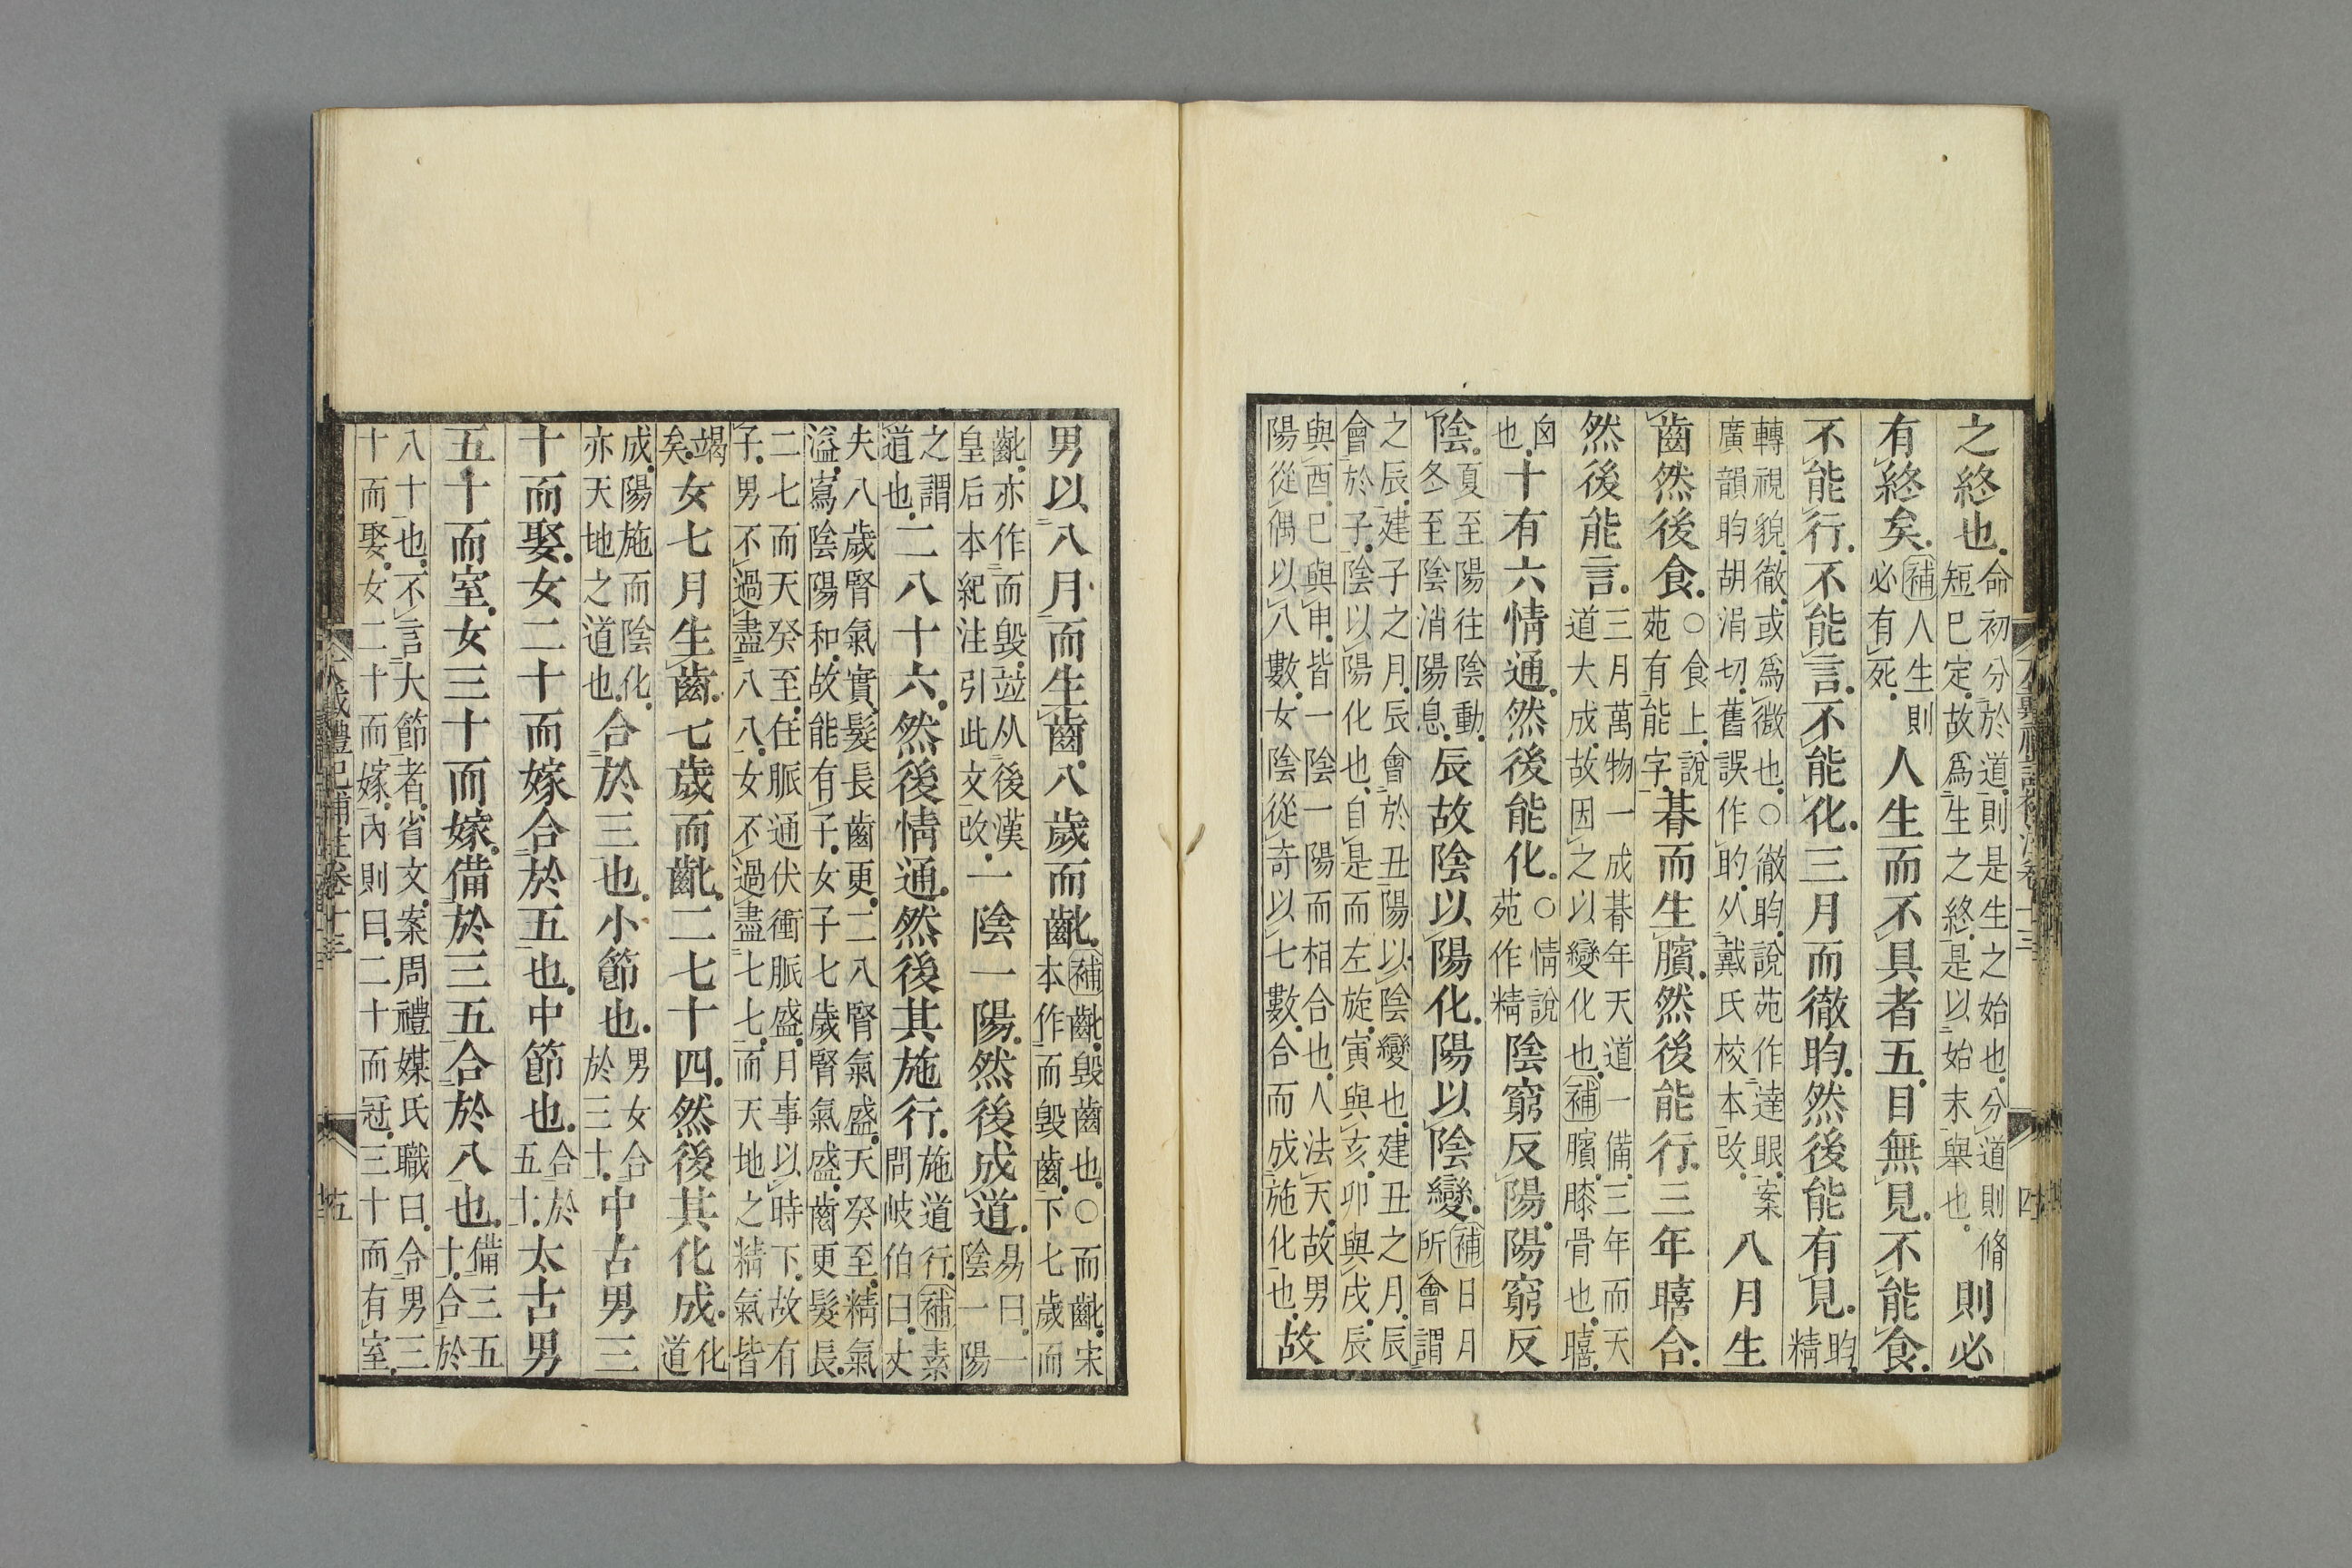 之終也。命初分於道則是生之始也。分道則脩短巳定。故爲生之終。是以始末舉也。則必
有終矣。補人生則必有死。人生而不具者五。目無見。不能食。
不能行。不能言。不能化。三月而徹盷。然後能有見。盷。精
轉視貌。徹。或爲微也。○徹盷。說苑作達眼。案廣韻盷胡涓切。舊誤作旳。从戴氏校本改。八月生
齒。然後食。○食上。說苑有能字。朞而生臏。然後能行。三年瞦合。
然後能言。三月萬物一成。朞年天道一備。三年而天道大成。故因之以變化也。補臏。膝骨也。瞦。
囟也。十有六情通。然後能化。○情說苑作精陰窮反陽。陽窮反
陰。夏至陽往陰動。冬至陰消陽息。辰故陰以陽化。陽以陰變。補日月所會謂
之辰。建子之月。辰會於丑。陽以陰變也。建丑之月。辰會於子。陰以陽化也。自是而左旋。寅與亥。卯與戌。辰
與酉。巳與申。皆一陰一陽而相合也。人法天。故男陽從偶以八數。女陰從奇以七數。合而成施化也。故
男以八月而生齒。八歲而齔。補齔。毁齒也。○而齔。宋本作而毁齒。下七歲而
齔。亦作而毁。竝从後漢皇后本紀注引此文改。一陰一陽。然後成道。易曰。一陰一陽
之謂道也。二八十六。然後情通。然後其施行。施道行。補素問岐伯曰。丈
夫八歲腎氣實。髮長齒更。二八腎氣盛。天癸至。精氣溢寫。陰陽和。故能有子。女子七歲腎氣盛。齒更髮長。
二七而天癸至。任脈通伏衝脈盛。月事以時下。故有子。男不過盡八八。女不過盡七七。而天地之精氣皆
竭矣。女七月生齒。七歲而齔。二七十四。然後其化成。化道
成。陽施而陰化。亦天地之道也。合於三也。小節也。男女合於三十。中古男三
十而娶。女二十而嫁。合於五也。中節也。合於五十。太古男
五十而室。女三十而嫁。備於三五。合於八也。備三五十。合於
八十也。不言大節者。省文。案周禮媒氏職曰。令男三十而娶。女二十而嫁。內則曰。二十而冠。三十而有室。